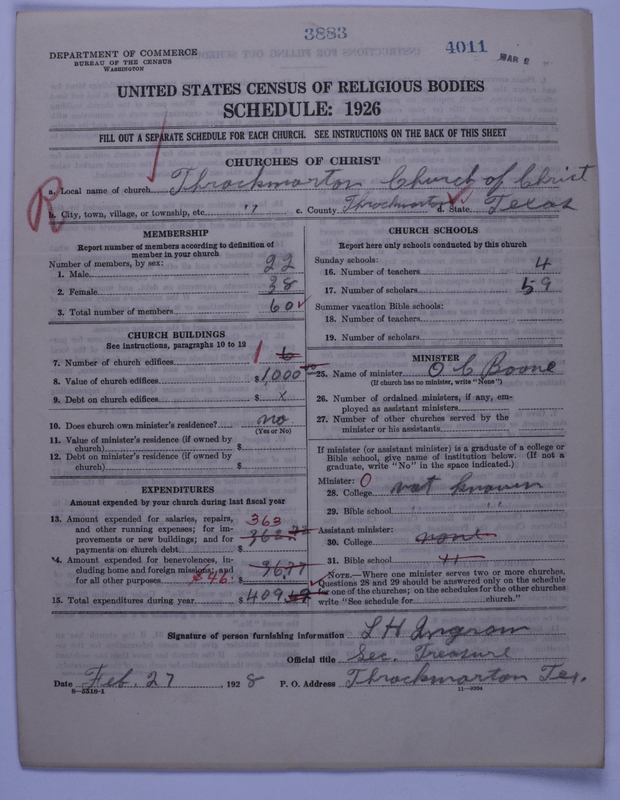 3883
4011
MAR 2
DEPARTMENT OF COMMERCE
BUREAU OF THE CENSUS
WASHINGTON
UNITED STATES CENSUS OF RELIGIOUS BODIES
SCHEDULE: 1926
FILL OUT A SEPARATE SCHEDULE FOR EACH CHURCH. SEE INSTRUCTIONS ON THE BACK OF THIS SHEET
CHURCHES OF CHRIST
R
a. Local name of church Throckmorton Church of Christ
b. City, town, village, or township, etc. " c. County Throckmorton d. State Texas
MEMBERSHIP
Report number of members according to definition of member in your church
Number of members, by sex:
1. Male 22
2. Female 38
3. Total number of members 60
CHURCH BUILDINGS
See instructions, paragraphs 10 to 12
7. Number of church edifices 1 6
8. Value of church edifices $1,000 00
9. Debt on church edifices $ x
10. Does church own minister's residence? no
(Yes or No)
11. Value of minister's residence (if owned by
church) $
12. Debt on minister's residence (if owned by
church) $
EXPENDITURES
Amount expended by your church during last fiscal year
13. Amount expended for salaries, repairs, 363
and other running expenses; for im-
provements or new buildings; and for
payments on church debt $
14. Amount expended for benevolences, in-
cluding home and foreign missions; and
for all other purposes $46.
15. Total expenditures during year $409
CHURCH SCHOOLS
Report here only schools conducted by this church
Sunday schools:
16. Number of teachers 4
17. Number of scholars 59
Summer vacation Bible schools:
18. Number of teachers
19. Number of scholars
MINISTER
25. Name of minister O C Boone
(If church has no minister, write "None")
26. Number of ordained ministers, if any, em-
ployed as assistant ministers
27. Number of other churches served by the
minister or his assistants
If minister (or assistant minister) is a graduate of a college or
Bible school, give name of institution below. (If not a
graduate, write "No" in the space indicated.)
Minister: 0
28. College not known
29. Bible school " "
Assistant minister:
30. College none
31. Bible school "
NOTE.—Where one minister serves two or more churches,
questions 28 and 29 should be answered only on the schedule
for one of the churches; on the schedules for the other churches
write "See schedule for church."
Signature of person furnishing information L H Ingram
Official title Sec. Treasure
Date Feb. 27 1928 P. O. Address Throckmorton Tex.
8—5510-1
11—9204